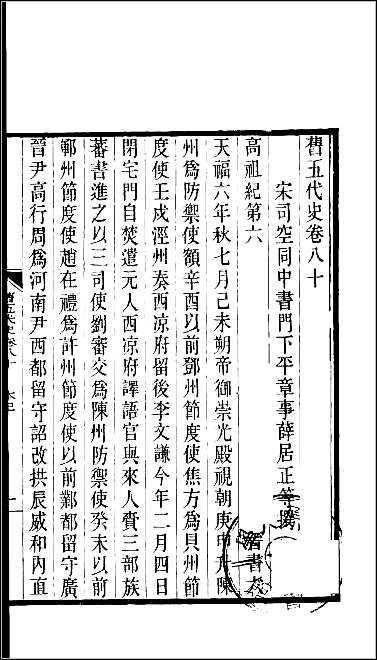 舊五代史卷八十
宋司空同中書門下平章事薛居正等撰
高祖紀第六
天福六年秋七月己未朔帝御崇光殿視朝庚申升陳
州爲防禦使額辛酉以前鄧州節度使焦方爲貝州節
度使壬戌涇州奏西涼府留後李文謙今年二月四日
閉宅門自焚遣元人西涼府譯語官與來人賫三部族
蕃書進之以三司使劉審交爲陳州防禦使癸未以前
鄆州節度使趙在禮爲許州節度使以前鄴都留守廣
晉尹高行周爲河南尹西都留守詔改拱辰威和內直